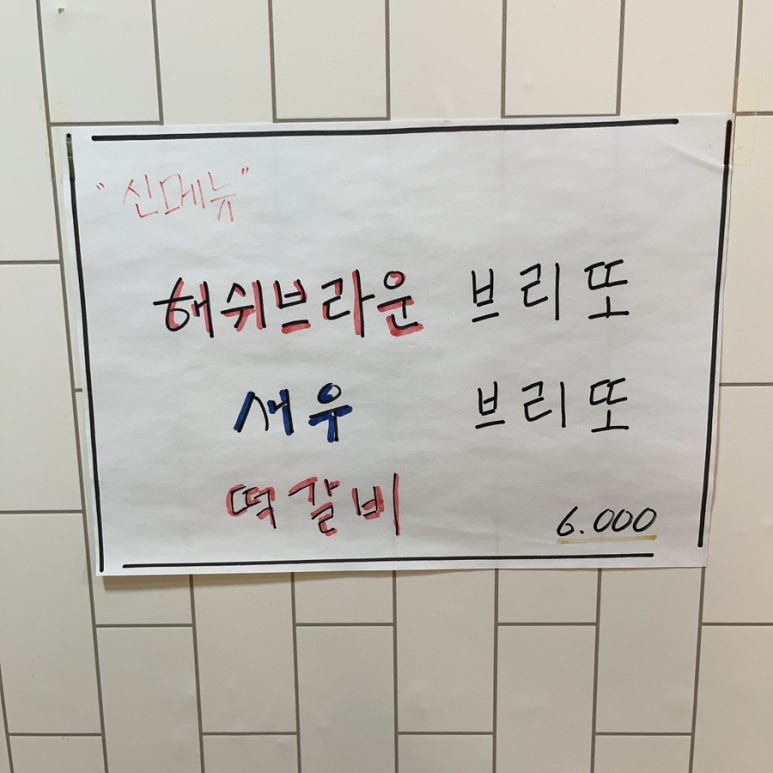 "신메뉴"
해쉬브라운 브리또
새우 브리또
떡갈비 6.000